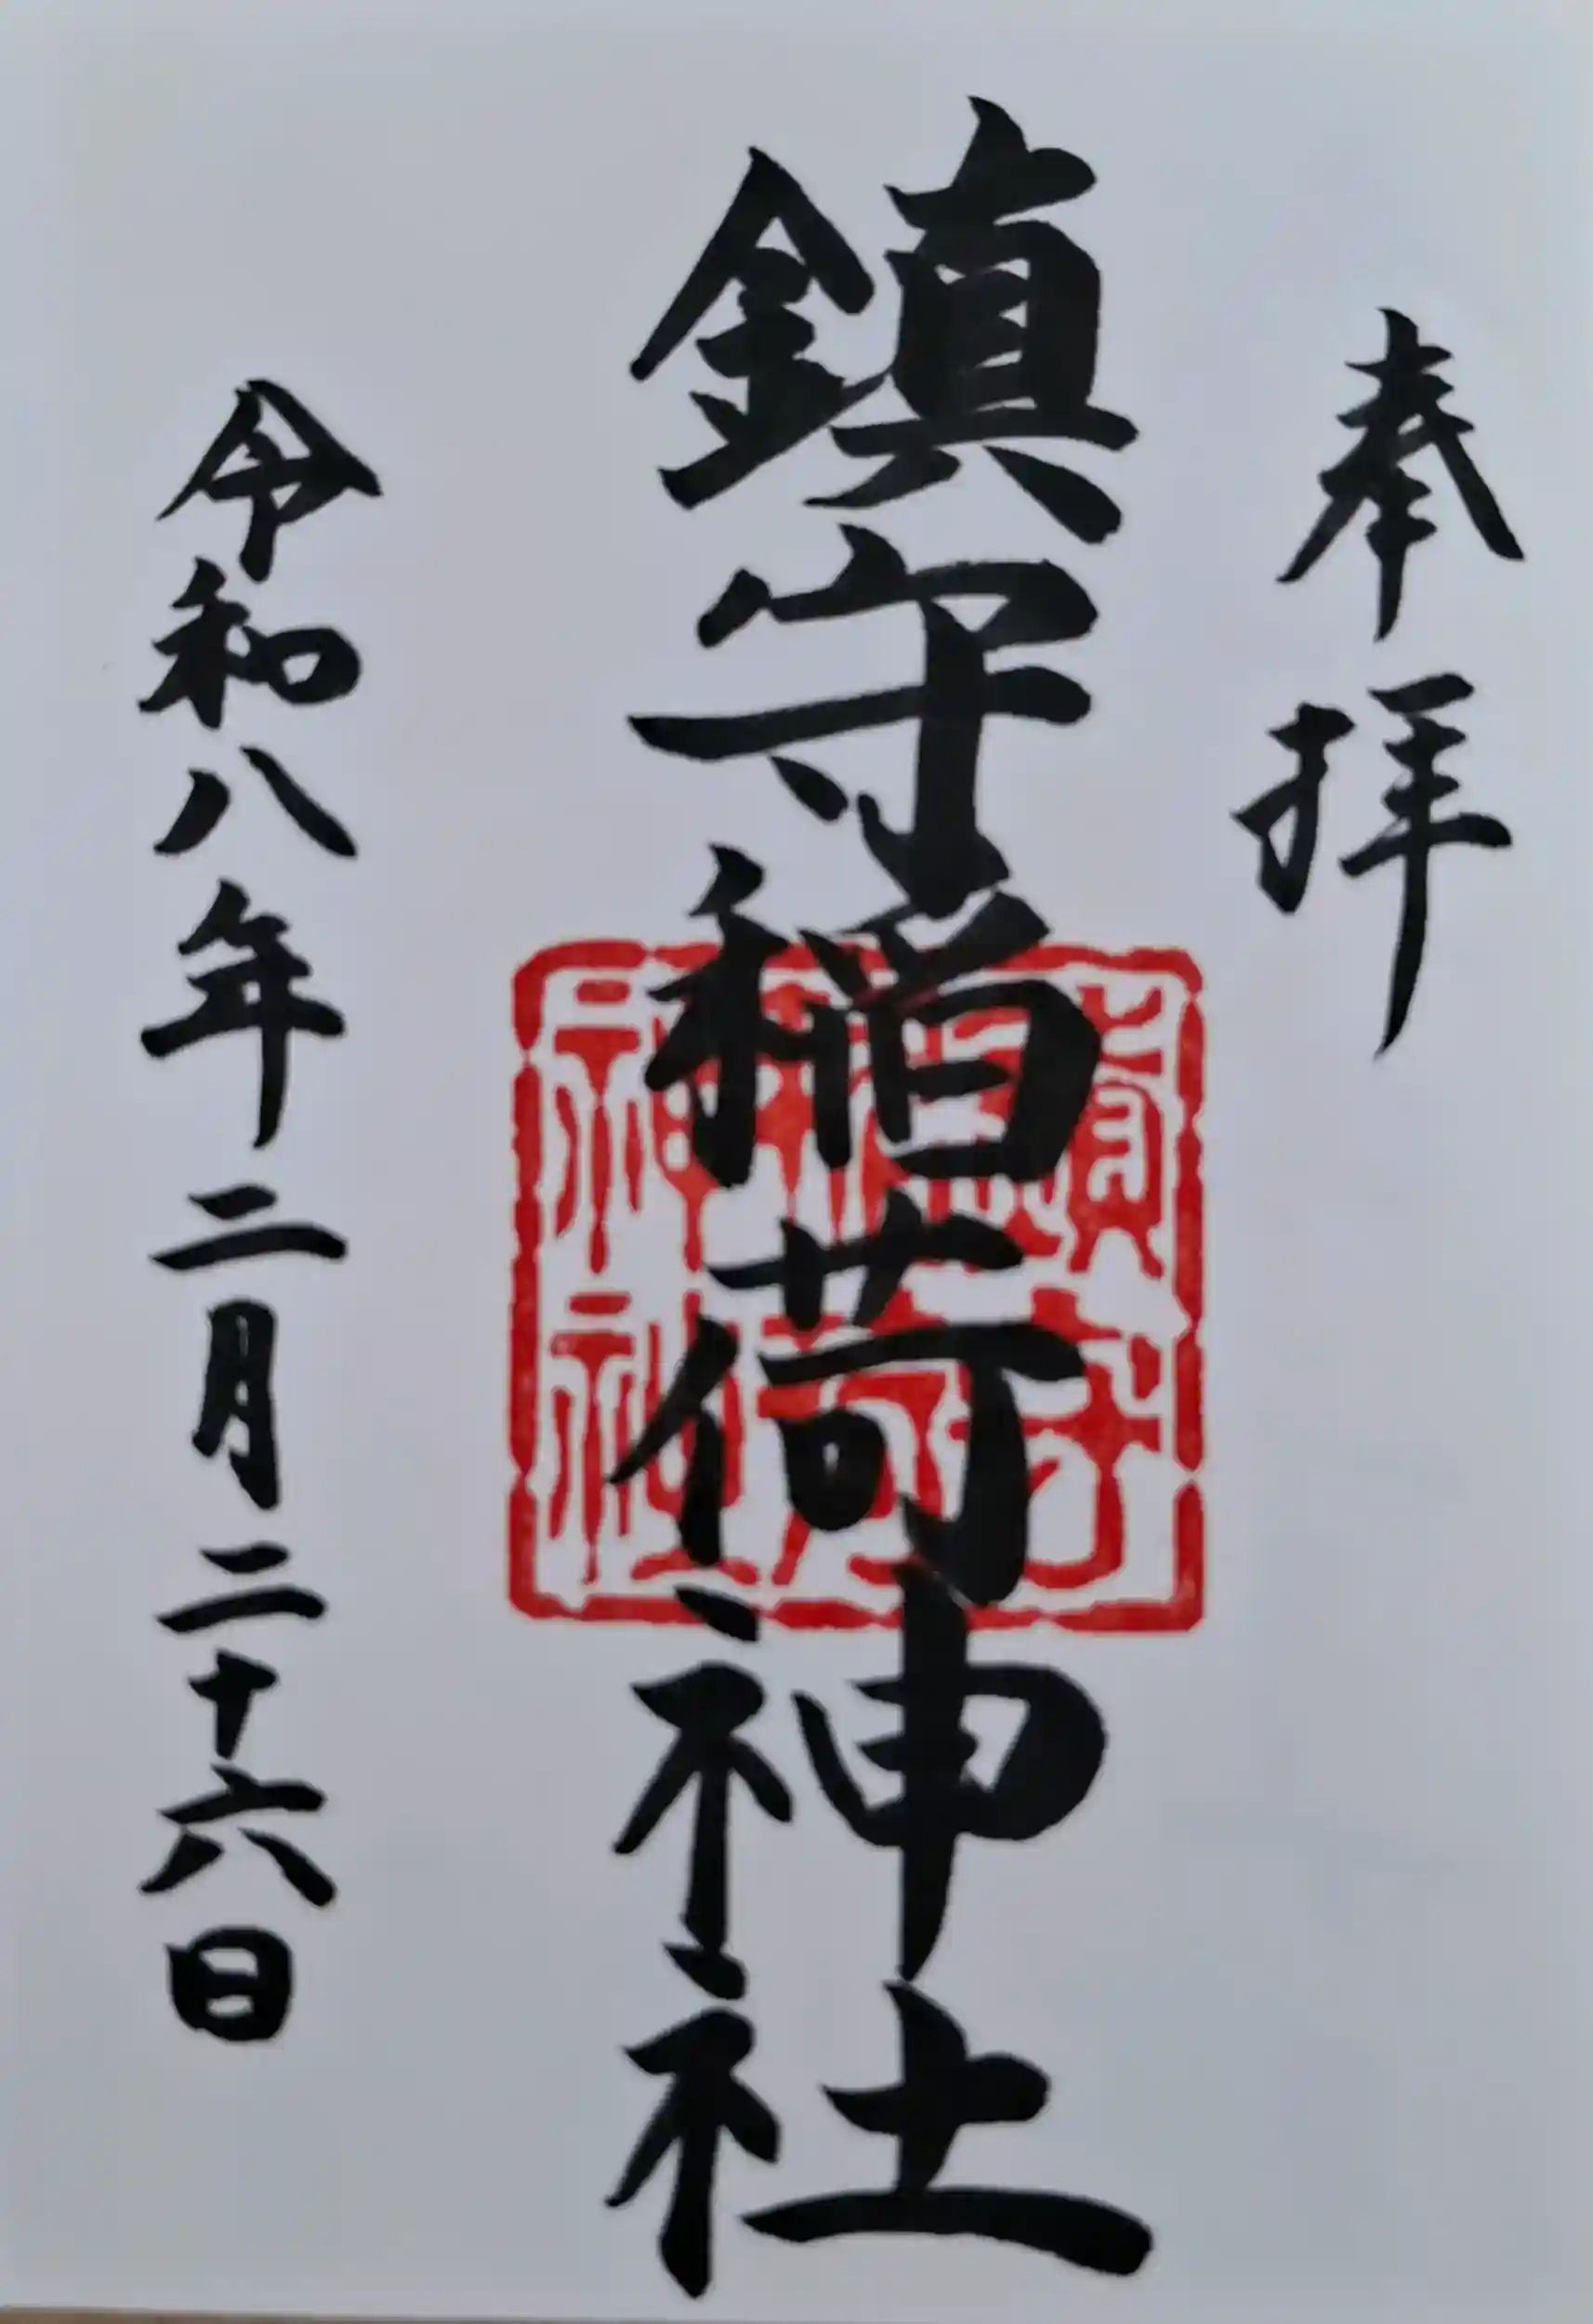 奉拝
鎮守稲荷神社
鎮守
稲荷
神社
令和八年二月二十六日